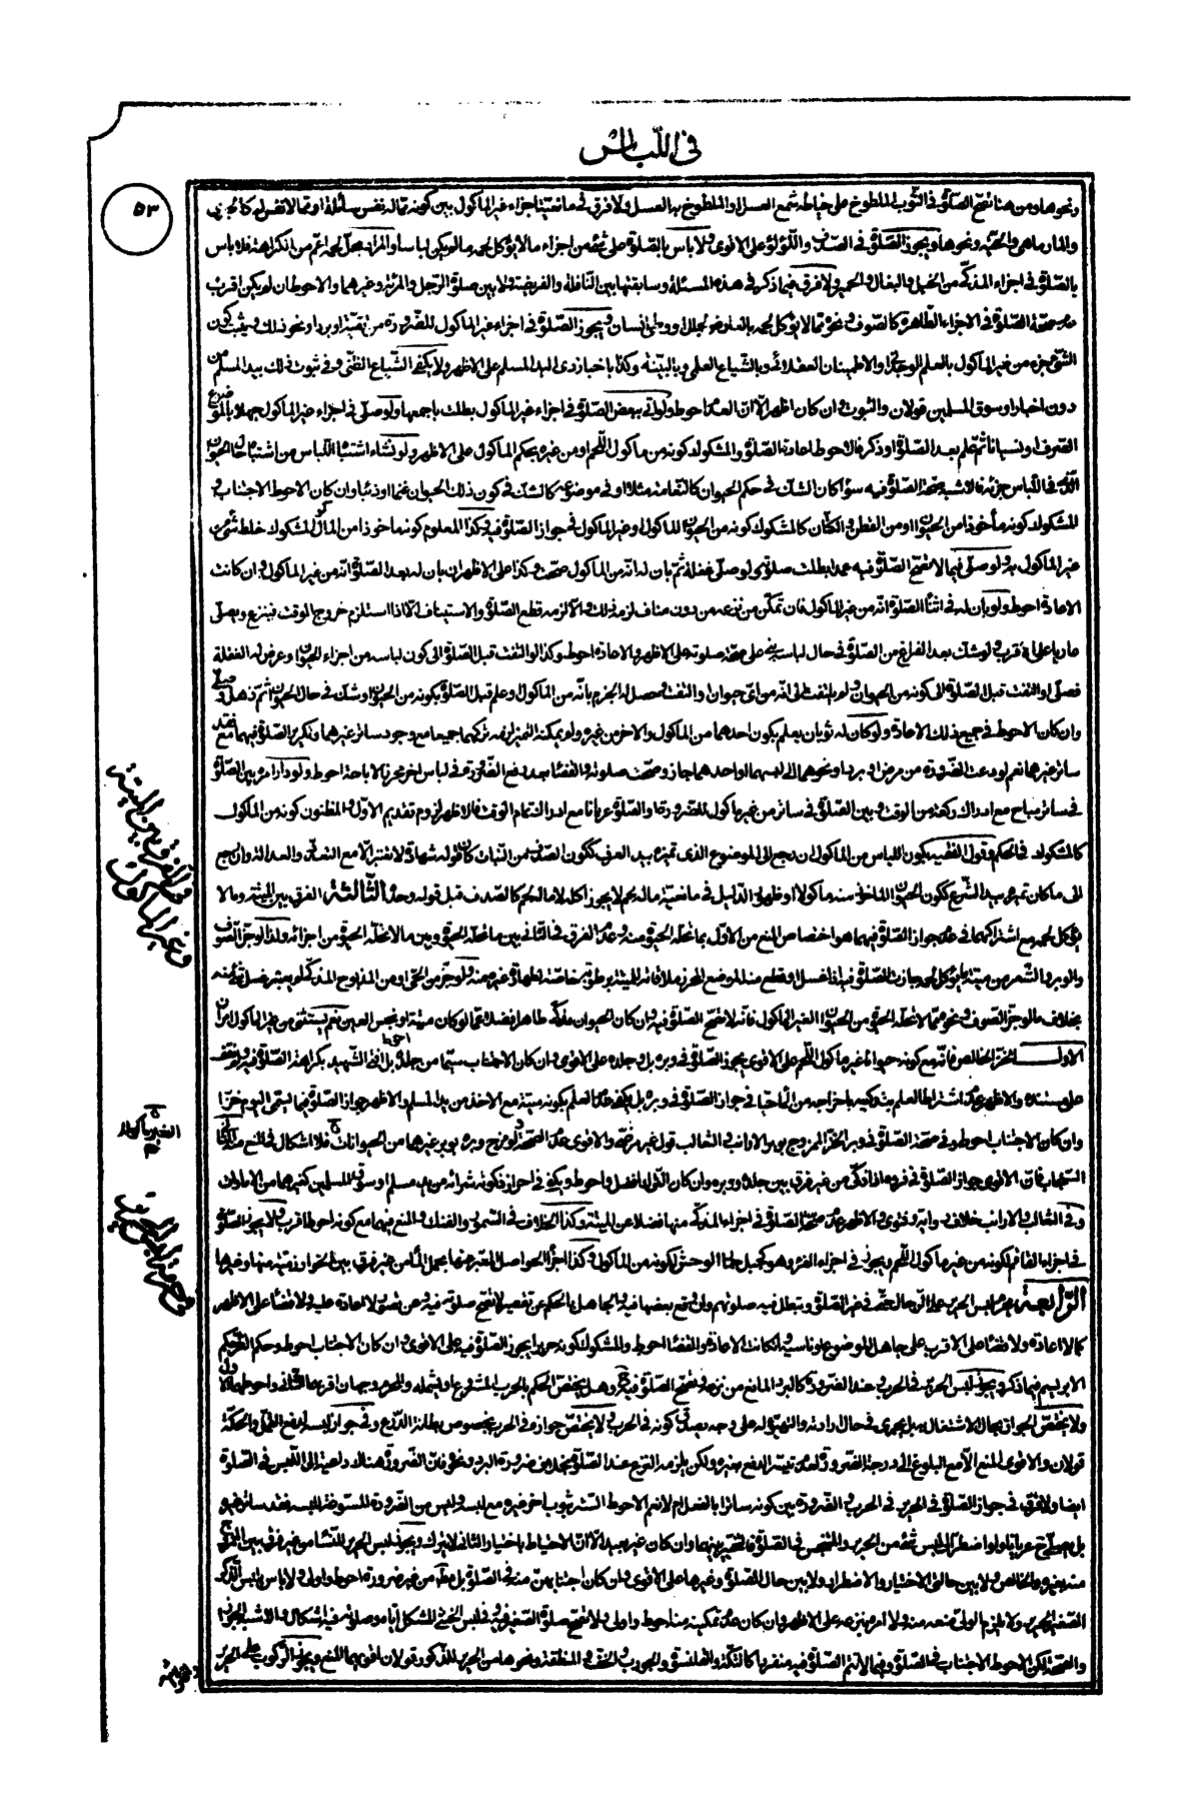 في اللباس
٥٣
ونحوها ومن هنا تصح الصلوة في الثوب الملطوخ على خياطه شمع العسل او الملطوخ به العسل ولا فرق في مانعية اجزاء غير الماكول بين كونه مما له نفس سائلة او مما لا نفس له كالجري
والمارماهي والحية ونحوها ويجوز الصلوة في الصدف واللؤلؤ على الاقوى ولا باس بالصلوة على شئ من اجزاء ما لا يؤكل لحمه ما لم يكن لباسا
بالصلوة في اجزاء المذكى من الخيل والبغال والحمير ولا فرق فيما ذكر في هذه المسئلة وسابقتها بين النافلة والفريضة ولا بين صلوة الرجل والمرئة وغيرهما والاحوط ان لم يكن اقرب
صحة الصلوة في الاجزاء الطاهرة كالصوف ونحوه مما لا يؤكل لحمه بالعارض كجلل او وطي انسان ويجوز الصلوة في اجزاء غير الماكول للضرورة من تقية او برد او نحو ذلك ويثبت كون
الشئ جزء من غير الماكول بالعلم الوجداني والاطمينان العقلائي وبالشياع العلمي وبالبينة وكذا باخبار ذي اليد المسلم على الاظهر ولا يكفي الشياع الظني وفي ثبوت ذلك بيد المسلم من
دون اخبار او سوق المسلمين قولان والثبوت وان كان اظهر الا ان العدم احوط ولو اتى ببعض الصلوة في اجزاء غير الماكول بطلت باجمعها ولو صلى في اجزاء غير الماكول جهلا بالموضوع
الصرف او نسيانا ثم علم بعد الصلوة او ذكر فالاحوط اعادة الصلوة والمشكوك كونه من ماكول اللحم او من غيره بحكم الماكول على الاظهر ولو نشاء اشتباه اللباس من اشتباه الحيوان
الذي اللباس جزئه فالاشبه صحة الصلوة فيه سواء كان الشك في حكم الحيوان كالنعامة مثلا او في موضوعه كالشك في كون ذلك الحيوان غنما او ذئبا وان كان الاحوط الاجتناب و
المشكوك كونه مأخوذا من الحيوان او من القطن والكتان كالمشكوك كونه من الحيوان الماكول او غير الماكول في جواز الصلوة فيه وكذا المعلوم كونه مأخوذا من الماكول المشكوك خلط شئ من
غير الماكول به ولو صلى فيما لا تصح الصلوة فيه عمدا بطلت صلوته ولو صلى غفلة ثم بان له انه من الماكول صحت وكذا على الاظهر ان بان له بعد الصلوة انه من غير الماكول وان كانت
الاعادة احوط ولو بان له في اثناء الصلوة انه من غير الماكول فان تمكن من نزعه من دون مناف لزمه ذلك والا لزمه قطع الصلوة والاستيناف الا اذا استلزم خروج الوقت فينزع ويصلي
عاريا على اقرب ولو شك بعد الفراغ من الصلوة في حال لباسه بنى على صحة صلوته على الاظهر والاعادة احوط وكذا لو التفت قبل الصلوة الى كون لباسه من اجزاء الحيوان وعرض له الغفلة
فصلى او التفت قبل الصلوة الى كونه من الحيوان ولم يلتفت الى انه من اي حيوان او التفت وحصل له الجزم بانه من الماكول وعلم قبل الصلوة بكونه من الحيوان وشك في حال الحيوان ثم ذهل وصلى
وان كان الاحوط في جميع ذلك الاعادة ولو كان له ثوبان يعلم بكون احدهما من الماكول والاخر من غيره ولم يمكنه التميز لزمه تركهما جميعا مع وجود ساتر غيرهما وتكرير الصلوة فيهما مع فقد
ساتر غيرهما نعم لو دعت الضرورة من مرض او برد او نحوهما الى لبسهما او احدهما جاز وصحت صلوته والقضاء بعد رفع الضرورة في لباس اخر محرز الاباحة احوط ولو دار امره بين الصلوة
في ساتر مباح مع ادراك ركعة من الوقت وبين الصلوة في ساتر من غير ماكول للضرورة او الصلوة عريانا مع ادراك تمام الوقت فالاظهر لزوم تقديم الاول والمظنون كونه من الماكول
كالمشكوك في الحكم وقول الفقيه بكون اللباس من الماكول ان رجع الى الموضوع الذي تميزه بيد العرف ككون الصدف من النبات كان قوله شهادة لا تعتبر الا مع التعدد والعدالة وان رجع
الى ما كان تميزه بيد الشرع ككون الحيوان الماخوذ منه ماكولا او ظهور الدليل في مانعية ما له لحم لا يجوز اكله لا ما لا لحم له كالصدف قبل قوله وحده الثالثة الفرق بين الميتة وما لا
يؤكل لحمه مع اشتراكهما في عدم جواز الصلوة فيهما هو اختصاص المنع من الاول بما تحله الحيوة منه وعدم الفرق في الثاني بين ما تحله الحيوة وبين ما لا تحله الحيوة من اجزائه ولذا لو جز الصوف
والوبر والشعر من ميتة ما يؤكل لحمه جازت الصلوة فيه اذا غسل او قطع منه الموضع
بخلاف ما لو جز الصوف ونحوه مما لا تحله الحيوة من الحيوان الغير الماكول فانه لا تصح الصلوة فيه وان كان الحيوان مذكى طاهرا فضلا عما لو كان ميتة او نجس العين نعم يستثنى من غير الماكول امران
الاول الخز الخالص فانه مع كونه حيوانا غير ماكول اللحم على الاقوى يجوز الصلوة في وبره بل وجلده على الاقوى وان كان الاجتناب سيما من جلده احوط بل افتى الشهيد بكراهة الصلوة فيه ولم نقف
على مستنده والاظهر عدم اشتراط العلم بتذكيته باخراجه من الماء حيا في جواز الصلوة في وبره بل يكفي عدم العلم بكونه ميتة مع الاخذ من يد المسلم والاظهر جواز الصلوة فيما يسمى اليوم خزا
وان كان الاجتناب احوط وفي صحة الصلوة في وبر الخز الممزوج بوبر الارانب والثعالب قول غير مرضي والاقوى عدم الصحة ولو مزج وبره بوبر غيرهما من الحيوانات فلا اشكال في المنع
السنجاب فان الاقوى جواز الصلوة في فروه اذا ذكي من غير فرق بين جلده ووبره وان كان الترك افضل واحوط ويكفي في احراز ذكوته شرائه من يد مسلم او سوق المسلمين كغيرهما من الامارات
وفي الثعالب والارانب خلاف رواية وفتوى والاظهر عدم صحة الصلوة في اجزاء المذكى منها فضلا عن الميتة وكذا الخلاف في السمور والفنك والمنع فيهما مع كونه احوط اقرب ولا يجوز الصلوة
في اجزاء القاقم لكونه من غير ماكول اللحم ويجوز في اجزاء الفرا وهو كجبل حمار الوحش لكونه من الماكول وكذا اجزاء الحواصل
الرابعة يحرم لبس الحرير على الرجال حتى في غير الصلوة وتبطل فيه صلوتهم وان وقع بعضها فيه والجاهل بالحكم عن تقصير لا تصح صلوته فيه وعن قصور لا اعادة عليه ولا قضاء على الاظهر
كما لا اعادة ولا قضاء على الاقرب على جاهل الموضوع وناسيه وان كانت الاعادة والقضاء احوط والمشكوك كونه حريرا يجوز الصلوة فيه على الاقوى وان كان الاجتناب احوط وحكم القز حكم
الابريسم فيما ذكر ويجوز لبس الحرير في الحرب وعند الضرورة كالبرد المانع من نزعه وتصح الصلوة فيه ح وهل يختص الحكم بالحرب المشروع او يشمله والمحرم وجهان اقربهما الثاني واحوطهما الاول
ولا يختص الجواز بحال الاشتغال به بل يجري في حال ارادته والتهيؤ له على وجه يصدق كونه في الحرب ولا يختص جوازه في الحرب بخصوص بطانة الدرع وفي جواز لبسه لدفع القمل والحكة
قولان والاقوى المنع الا مع البلوغ الى درجة الضرورة وعدم تيسر الدفع بغيره ولكن يلزمه النزع عند الصلوة بخلاف ضرورة البرد ونحوه فان الضرورة هناك داعية الى اللبس في الصلوة
ايضا ولا فرق في جواز الصلوة في الحرير في الحرب والضرورة بين كونه ساترا بالفعل ام لا نعم الاحوط التستر بثوب اخر غيره مع لبسه وليس من الضرورة المسوغة للبسه فقد ساتر غيره
بل يصلي ح عريانا ولو اضطر الى لبس شئ من الحرير والنجس في الصلوة
منه بغيره والخالص ولا بين حالتي الاختيار والاضطرار ولا بين حال الصلوة وغيرها على الاقوى وان كان اجتنابهن منه في الصلوة بل مطلقا من غير ضرورة احوط واولى ولا باس بلبس الذكر
الصغير الحرير ولا يلزم الولي منعه منه ولا امره بنزعه على الاظهر وان كان عدم تمكينه منه احوط واولى ولا تصح صلوة الصغير فيه وفي لبس الخنثى المشكل اياه وصلوته فيه اشكال والاشبه الجواز
والصحة لكن الاحوط الاجتناب في الصلوة وفيما لا تتم الصلوة فيه منفردا كالتكة والقلنسوة والجورب والخف والمنطقة ونحوها من الحرير المذكور قولان اقويهما المنع ويجوز الركوب على الحرير
في الفرق بين الميتة
وغير الماكول
في حرمة لبس الحرير